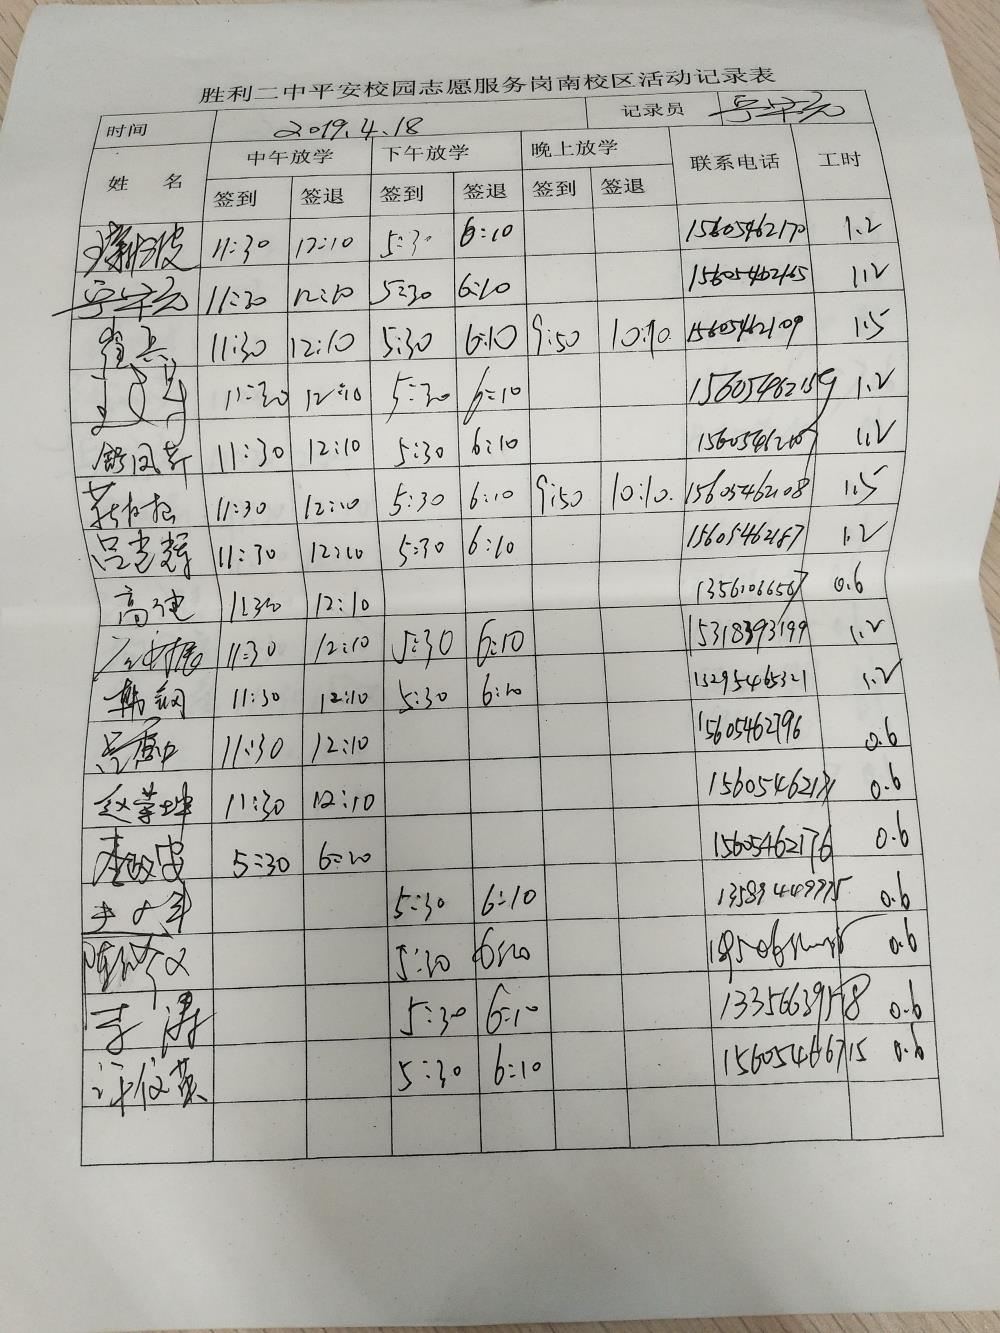 胜利二中平安校园志愿服务岗南校区活动记录表
时间 2019.4.18 记录员
姓名 中午放学 下午放学 晚上放学 联系电话 工时
签到 签退 签到 签退 签到 签退
11:30 12:10 5:30 6:10 15605462170 1.2
11:30 12:10 5:30 6:10 15605462165 1.2
崔兵 11:30 12:10 5:30 6:10 9:50 10:10. 15605462109 1.5
11:30 12:10 5:30 6:10 15605462159 1.2
11:30 12:10 5:30 6:10 1.2
11:30 12:10 5:30 6:10 9:50 10:10. 15605462108 1.5
吕光辉 11:30 12:10 5:30 6:10 15605462187 1.2
高健 11:30 12:10 13561066567 0.6
11:30 12:10 5:30 6:10 15318393199 1.2
韩钢 11:30 12:10 5:30 6:10 13295465321 1.2
11:30 12:10 15605462796 0.6
赵荣坤 11:30 12:10 0.6
5:30 6:10 15605462776 0.6
5:30 6:10 0.6
5:30 6:10 0.6
李涛 5:30 6:10 0.6
许俊英 5:30 6:10 15605466715 0.6